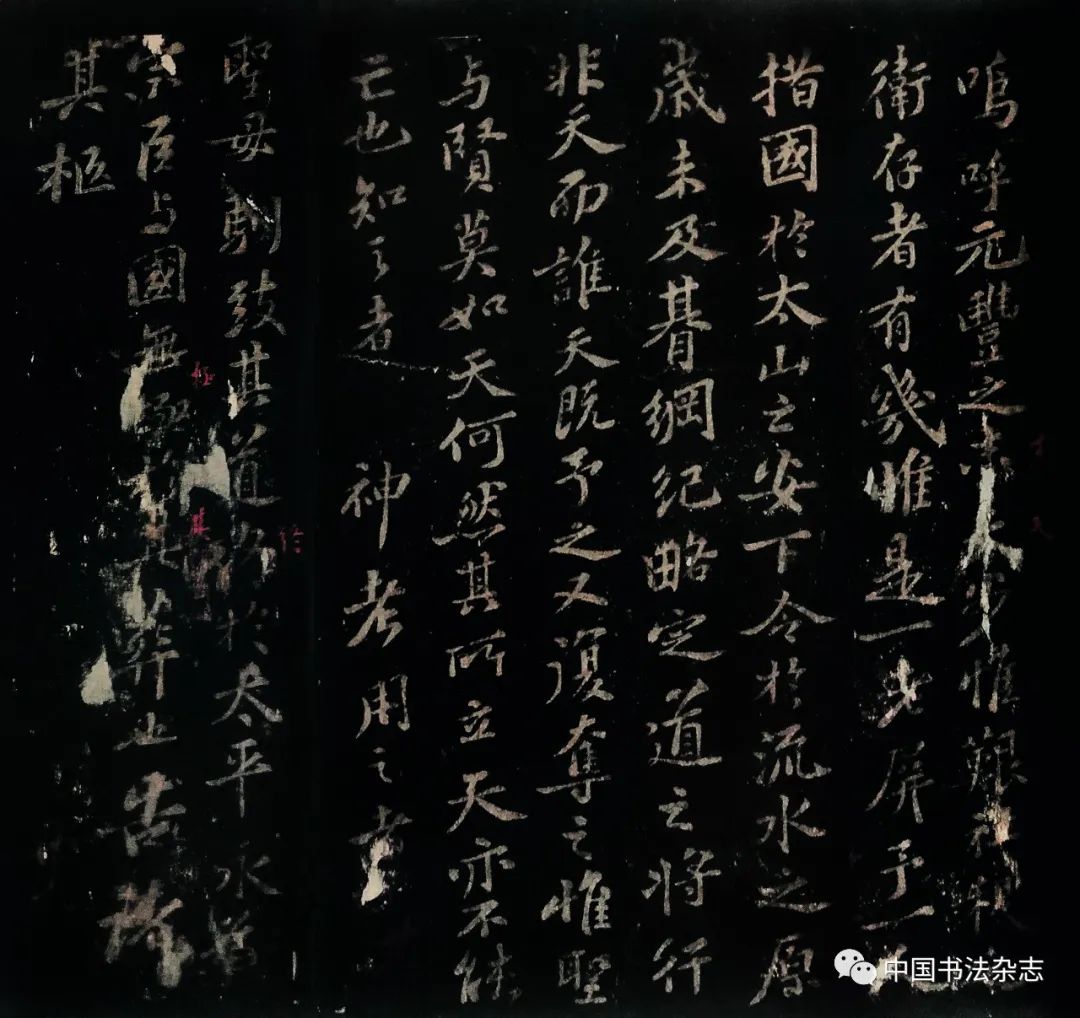 嗚呼元豐之末天步惟艱社稷
衛存者有幾惟是一老屏予一人
措國於太山之安下令於流水之原
歲未及朞綱紀略定道之將行
非天而誰天既予之又復奪之惟聖
与賢莫如天何然其所立天亦不能
亡也知之者 神考用之者
聖母馴致其道終於太平永爲
宗臣与國無其葬也告諸
其柩
終
極
其
中国书法杂志